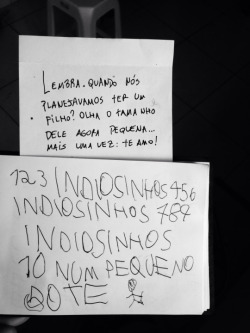 LEMBRA. QUANDO NÓS
PLANEJAVAMOS TER UM
FILHO? OLHA O TAMANHO
DELE AGORA PEQUENA...
MAIS UMA VEZ: TE AMO!
123 INDIOSINHOS 456
INDIOSINHOS 789
INDIOSINHOS
10 NUM PEQUENO
BOTE